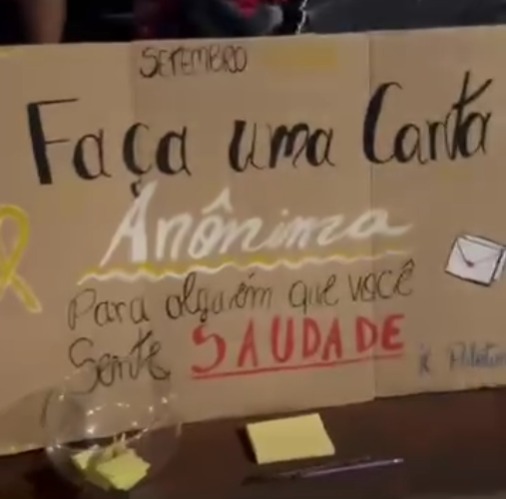 SETEMBRO
Faça uma Carta
Anônima
Para alguém que você
Sente SAUDADE